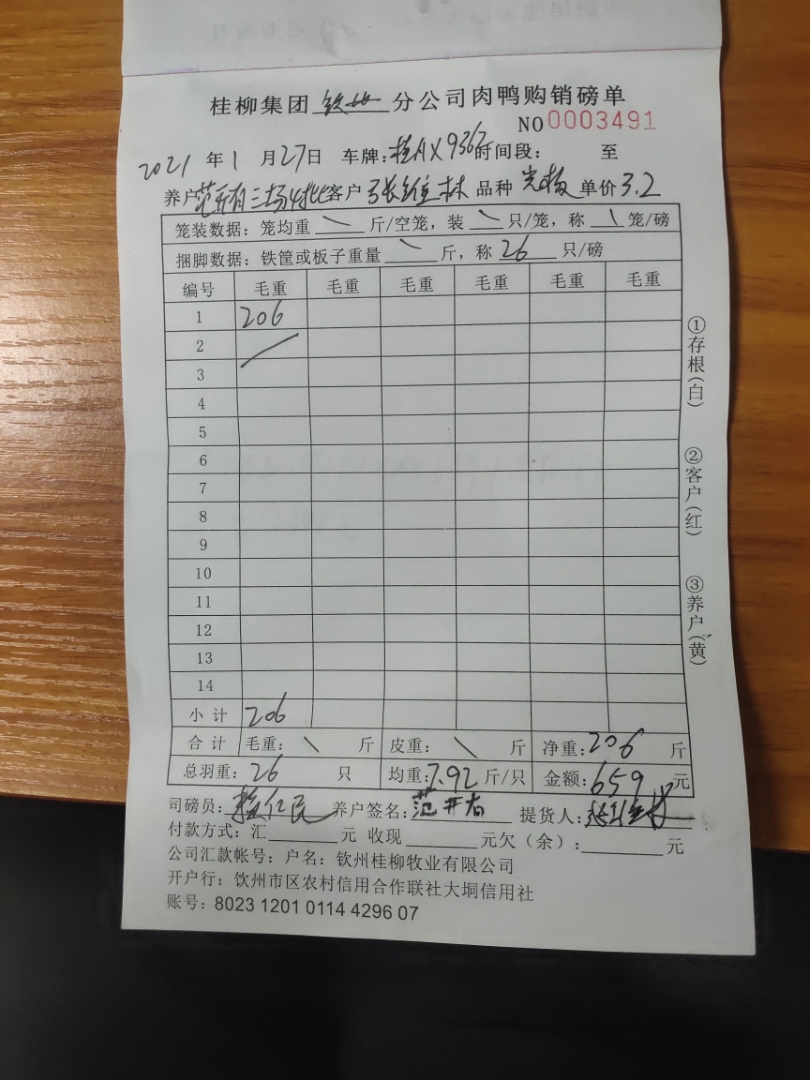 桂柳集团 钦州 分公司肉鸭购销磅单
NO 0003491
2021 年 1 月 27 日 车牌: 桂AX9367 时间段: 至
养户 范开有三场4批 客户 张维林 品种 单价 3.2
笼装数据: 笼均重 \ 斤/空笼, 装 \ 只/笼, 称 \ 笼/磅
捆脚数据: 铁筐或板子重量 \ 斤, 称 26 只/磅
编号 毛重 毛重 毛重 毛重 毛重 毛重
1 206
2
3
4
5
6
7
8
9
10
11
12
13
14
小计 206
合计 毛重: \ 斤 皮重: \ 斤 净重: 206 斤
总羽重: 26 只 均重: 7.92 斤/只 金额: 659 元
司磅员: 养户签名: 范开有 提货人:
付款方式: 汇 元 收现 元欠(余): 元
公司汇款帐号: 户名: 钦州桂柳牧业有限公司
开户行: 钦州市区农村信用合作联社大垌信用社
账号: 8023 1201 0114 4296 07
①存根(白)
②客户(红)
③养户(黄)